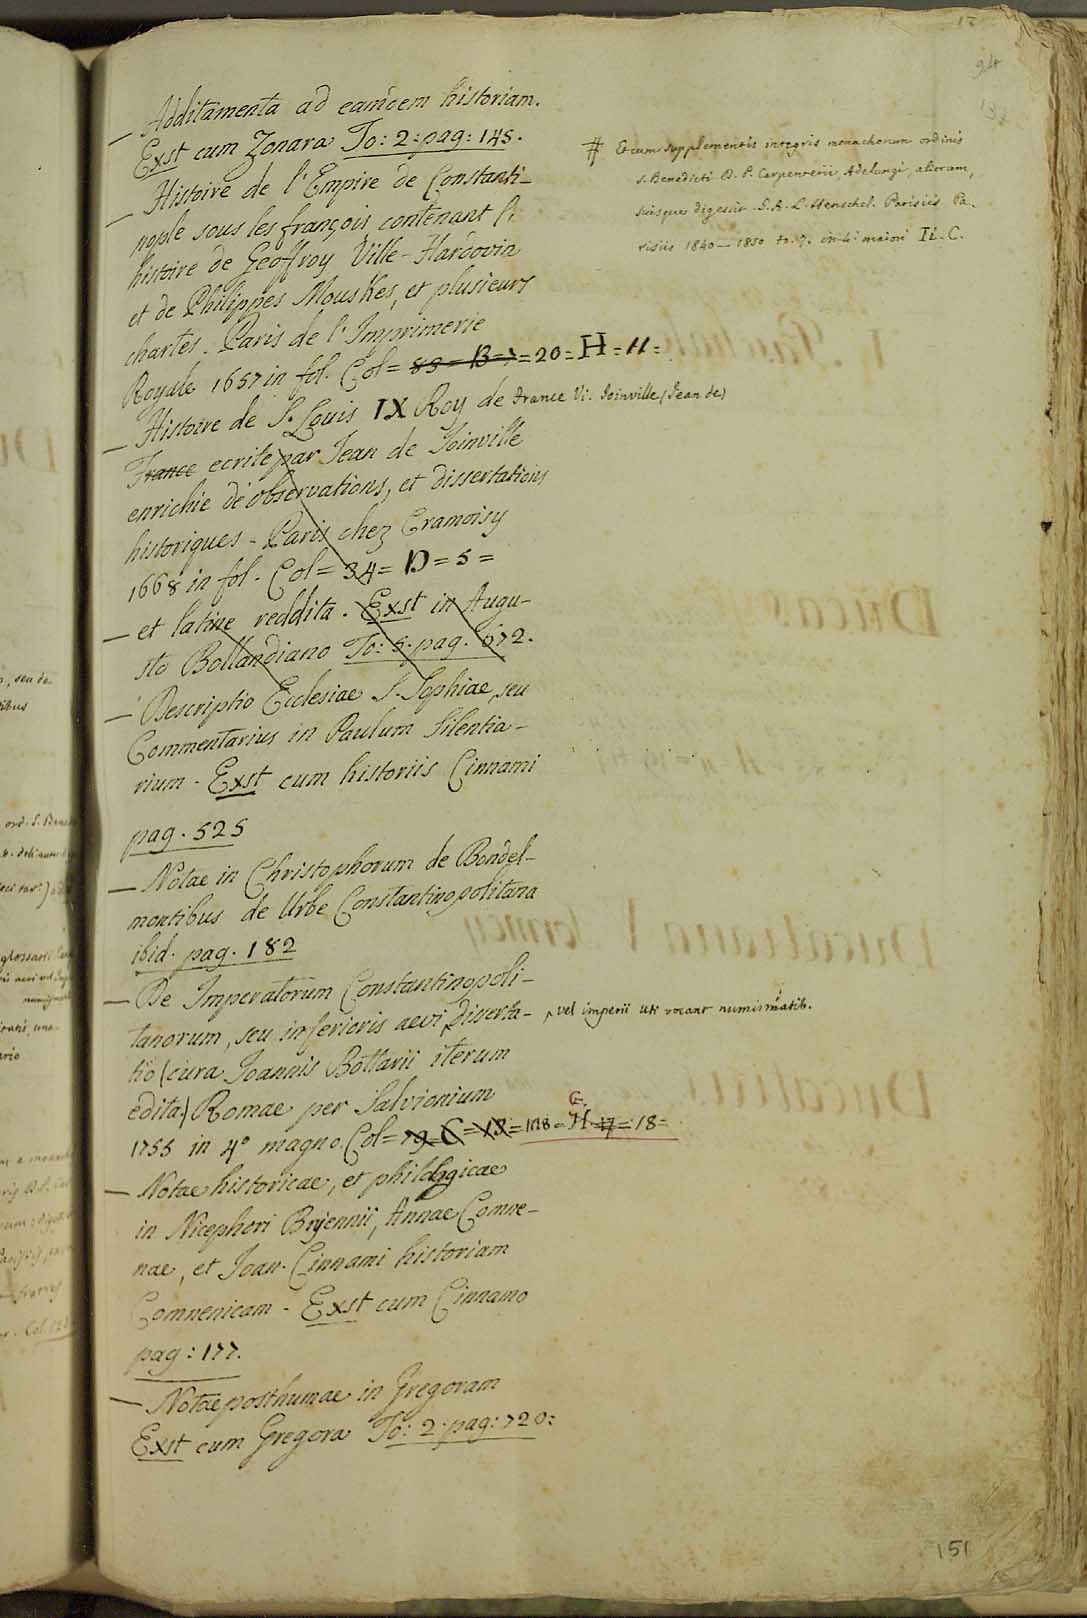 94
— Additamenta ad eamdem historiam.
Exst cum Zonara To: 2: pag: 145.
— Histoire de l'Empire de Constanti-
nople sous les françois contenant l'
histoire de Geoffroy Ville-Hardovin
et de Philippes Mouskes, et plusieurs
chartes. Paris de l'Imprimerie
Royale 1657 in fol. Col= 89= B= 7= 20= H= 11=
— Histoire de S. Louis IX Roy de France Vi. Joinville (Jean de)
France ecrite par Jean de Joinville
enrichie de observations, et dissertations
historiques - Paris chez Cramoisy
1668 in fol. Col= 34= D= 5=
— et latine reddita. Exst in Augu-
sto Bollandiano To: 5. pag. 672.
— Descriptio Ecclesiae S. Sophiae, seu
Commentarius in Paulum Silentia-
rium - Exst cum historiis Cinnami
pag. 525
— Notae in Christophorum de Bondel-
montibus de Urbe Constantinopolitana
ibid. pag. 182
— De Imperatorum Constantinopoli-
tanorum, seu inferioris aevi, Disserta- vel imperii uti vocant numismatib.
tio (cura Joannis Bottarii iterum
edita) Romae per Salvionium
1755 in 4º magno. Col= 79= C= 12= 118= G. H 17= 18=
— Notae historicae, et philologicae
in Nicephori Bryennii, Annae Comne-
nae, et Joan. Cinnami historiam
Comnenicam - Exst cum Cinnamo
pag: 177.
— Notae posthumae in Gregoram
Exst cum Gregora To: 2. pag: 720:
# Et cum supplementis integris monachorum ordinis
S. Benedicti D. P. Carpenterii, Adelungi, aliorum,
suisque digessit G. A. L. Henschel. Parisiis Pa.
risiis 1840—1850 to. 7. in 4º maiori IL. C.
151